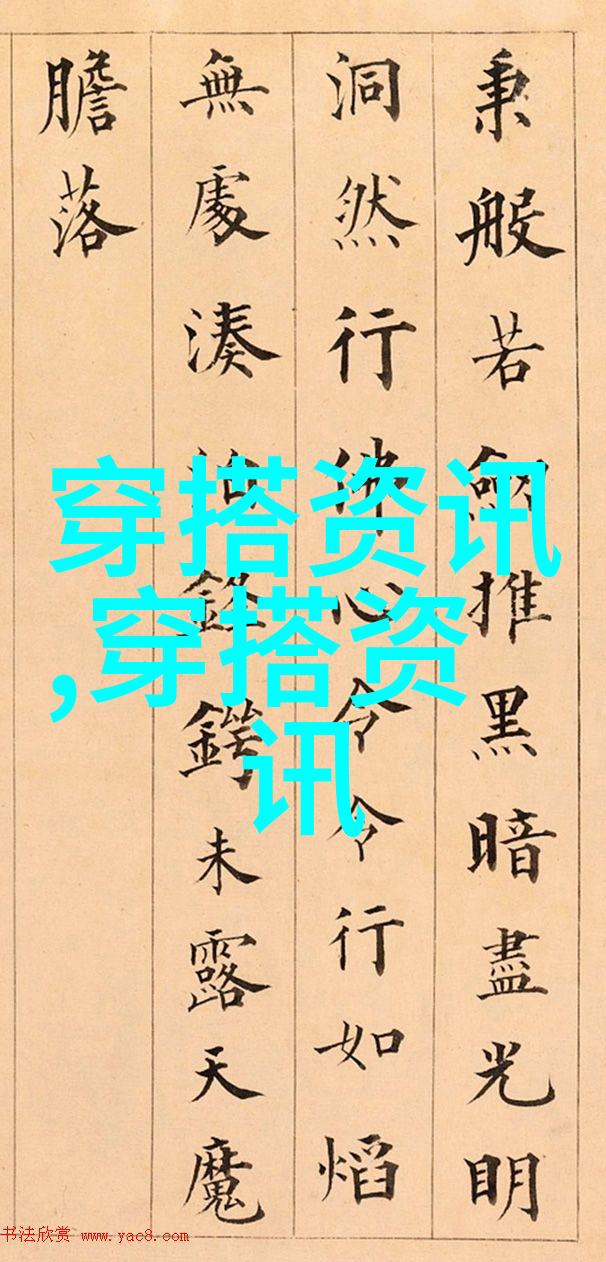 秉般若推黑暗盡光明
洞然行佛心令令行如熖
無處湊泊鋒鍔未露天魔
膽落
穿搭资讯
,穿搭资
讯
书法欣赏 www.yac8.com